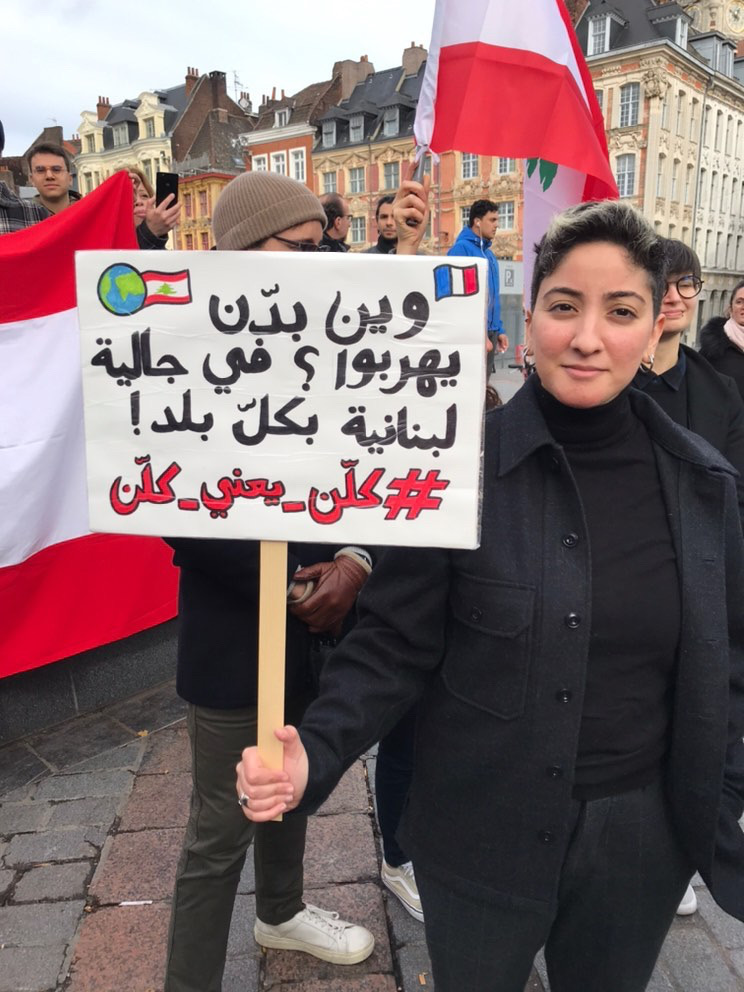 وين بدّن
يهربوا؟ في جالية
لبنانية بكلّ بلد!
#كلّن_يعني_كلّن